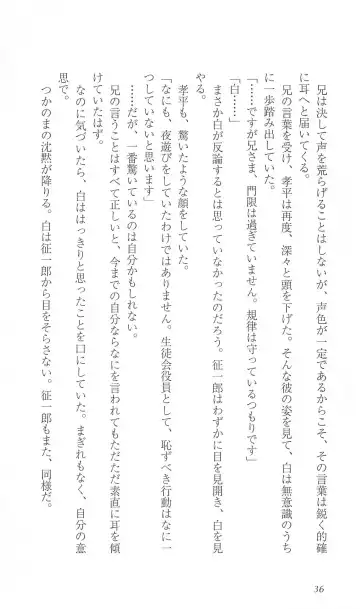 兄は決して声を荒らげることはしないが、声色が一定であるからこそ、その言葉は鋭く的確
に耳へと届いてくる。
兄の言葉を受け、孝平は再度、深々と頭を下げた。そんな彼の姿を見て、白は無意識のうち
に一歩踏み出していた。
「……ですが兄さま、門限は過ぎていません。規律は守っているつもりです」
「白……」
まさか白が反論するとは思っていなかったのだろう。征一郎はわずかに目を見開き、白を見
やる。
孝平も、驚いたような顔をしていた。
「なにも、夜遊びをしていたわけではありません。生徒会役員として、恥ずべき行動はなに一
つしていないと思います」
……だが、一番驚いているのは自分かもしれない。
兄の言うことはすべて正しいと、今までの自分ならなにを言われてもただただ素直に耳を傾
けていたはず。
なのに気づいたら、白ははっきりと思ったことを口にしていた。まぎれもなく、自分の意
思で。
つかのまの沈黙が降りる。白は征一郎から目をそらさない。征一郎もまた、同様だ。
36